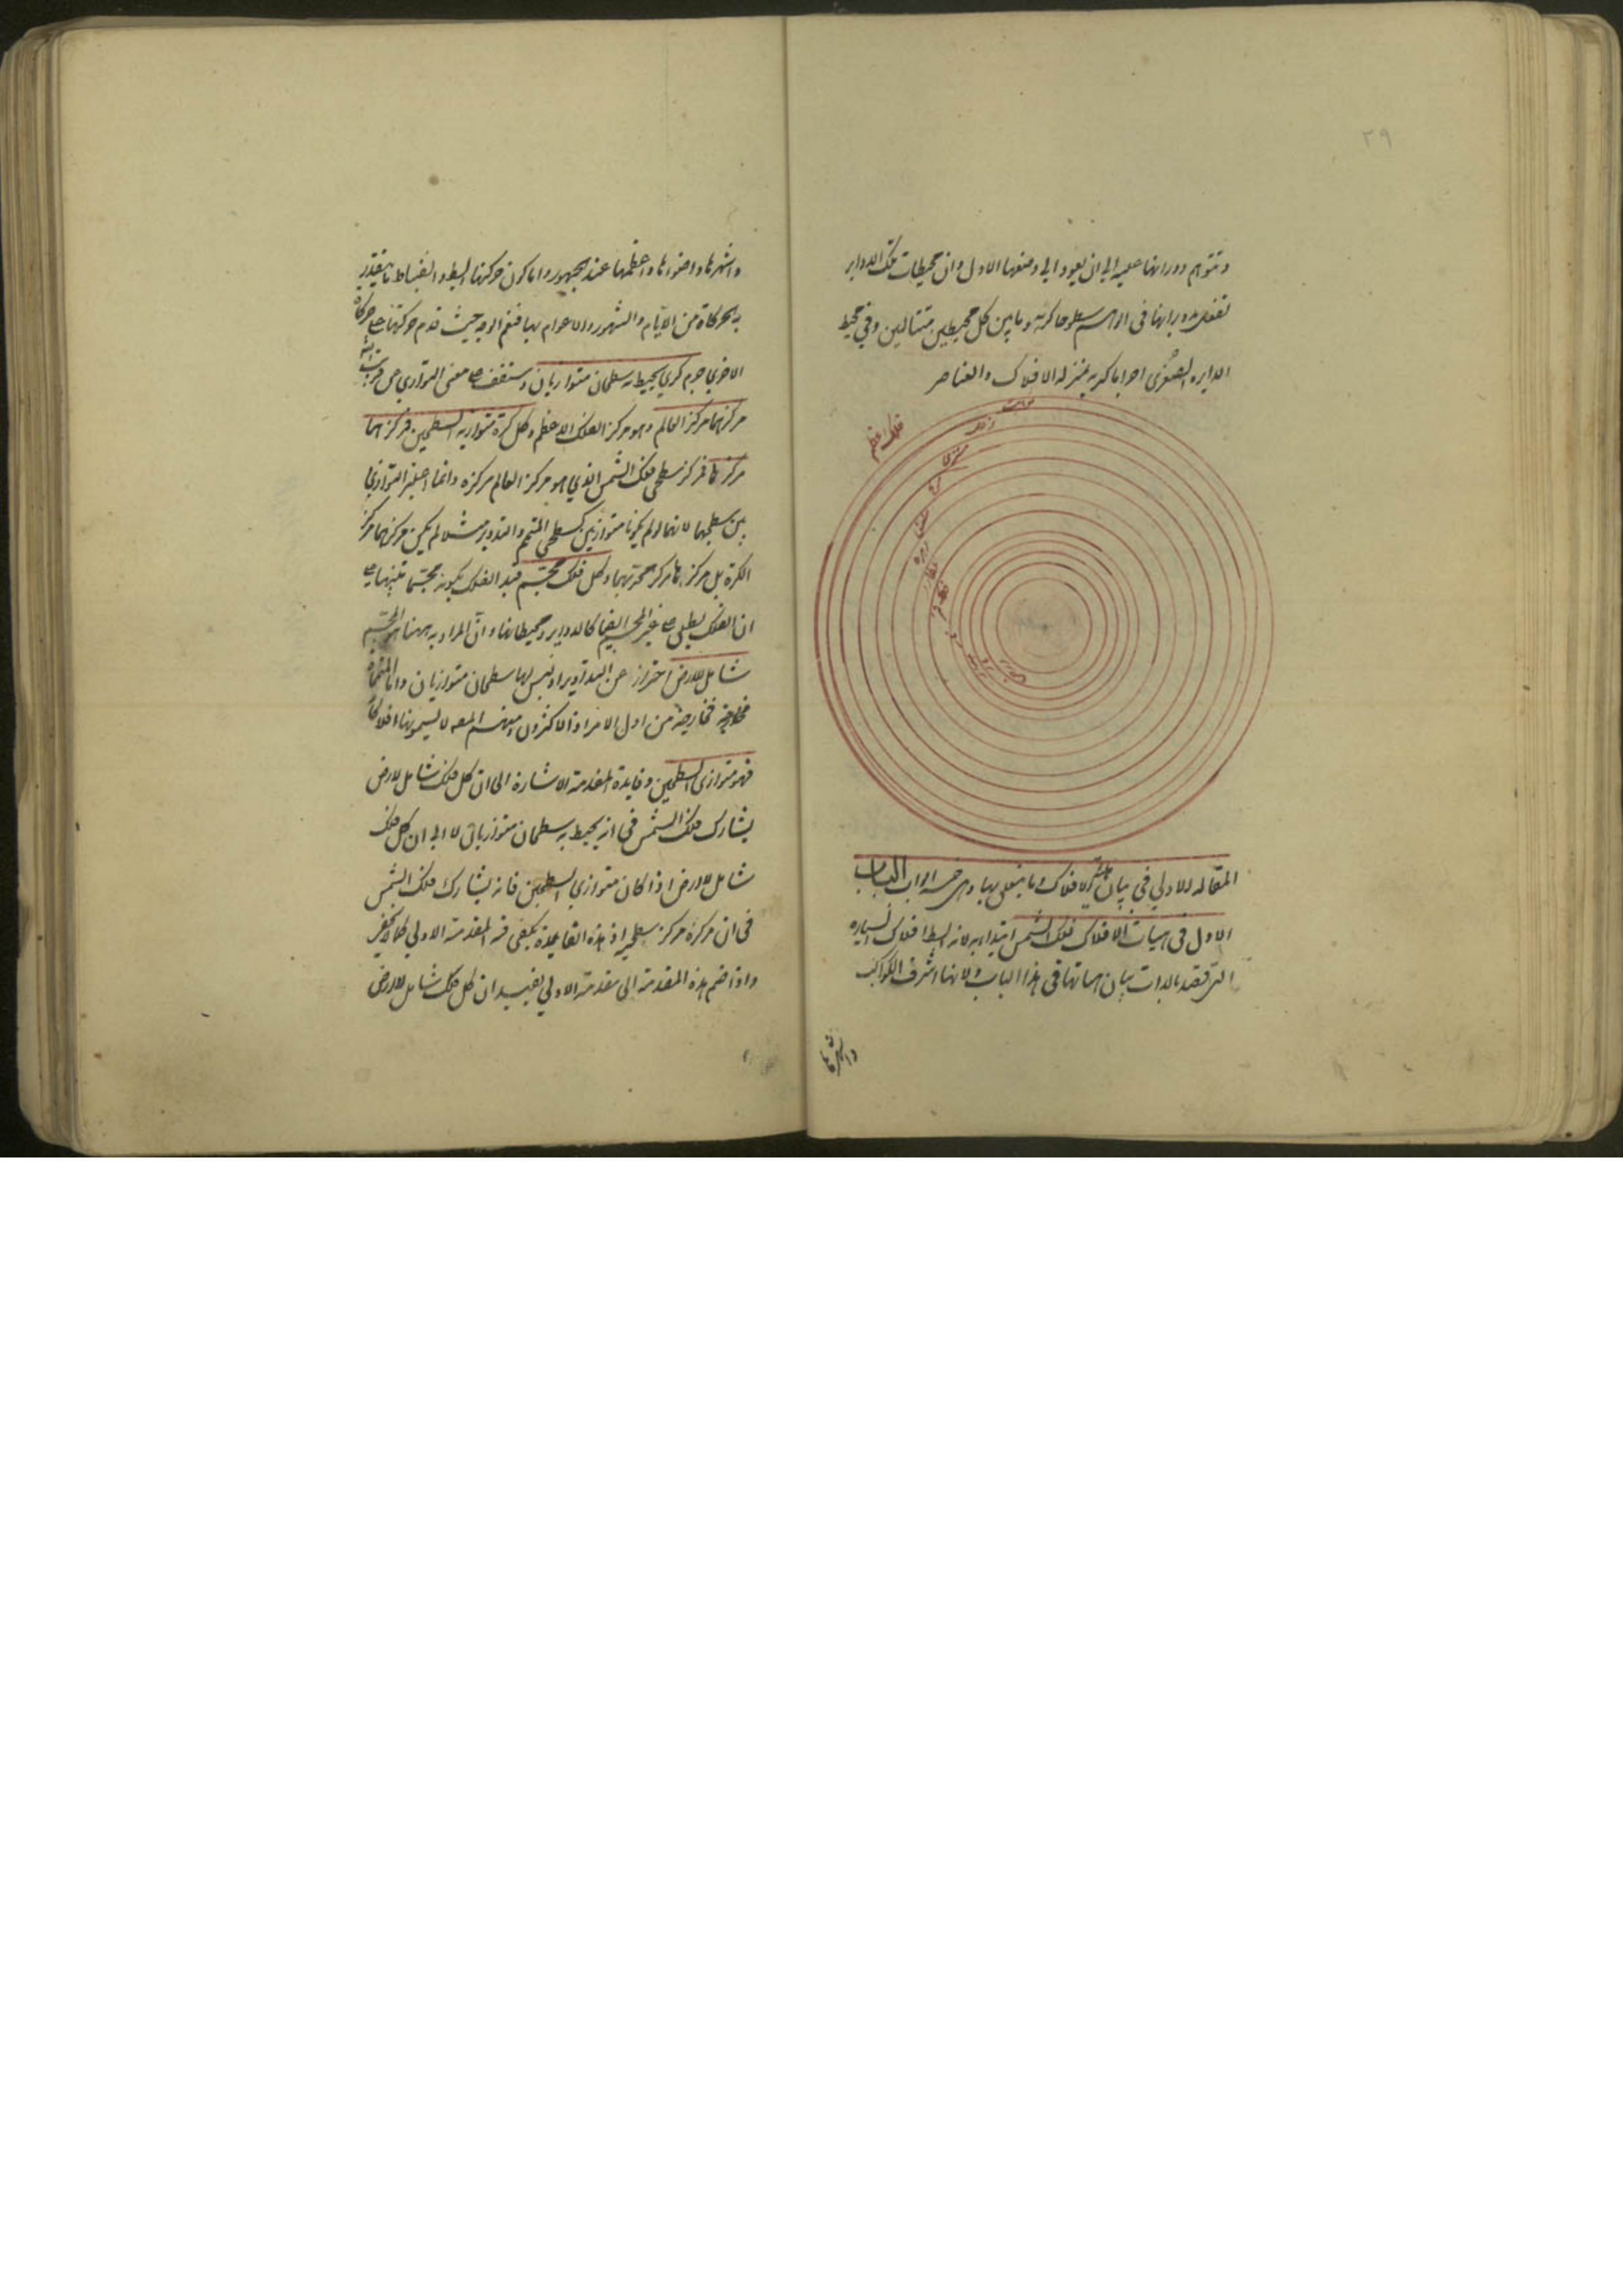 ٢٩
وتتوهم دورانها عليه الى ان يعود الى وضعها الاول وان محيطات تلك الدواير
تفعل بدورانها فى الوهم سطوحا كرية وما بين كل محيطين متتاليين وفي محيط
الدايره الصغرى اجراما كرية بمنزلة الافلاك والعناصر
فلك اعظم
ثوابت
زحل
مشترى
مريخ
شمس
زهره
عطارد
فلك قمر
المقاله الاولي في بيان الافلاك وما يتعلق بها وهى خمسه ابواب الباب
الاول فى هيات الافلاك فلك الشمس ابتداء به لانه ابسط افلاك السياره
التى قصد بالذات بيان هياتها فى هذا الباب ولانها اشرف الكواكب
واشهرها
واشهرها واضوائها واعظمها عند الجمهور واما كون حركتها ابسط وانضباط ما يتقدر
بحركاة من الايام والشهور والاعوام بها فنعم الوجه حيث قدم حركتها على حركاة
الاخرى جرم كري يحيط به سطحان متوازيان وستقف على معنى التوازي عن قريب
مركزهما مركز العالم وهو مركز الفلك الاعظم وكل كرة متوازية السطحين فمركزهما
مركزها فمركز سطحي فلك الشمس الذي هو مركز العالم مركزه وانما اعتبر التوازي
بين سطحيها لانهما لو لم يكونا متوازيين كسطحى المتمم والتدوير مثلا لم يكن مركزهما مركز
الكرة بل مركز وكل فلك مجسم قيد الفلك بكونه مجسما تنبيها على
ان الفلك يطلق على غير المجسم ايضا كالدواير ومحيطاتها وان المراد به ههنا هو المجسم
شامل للارض احتراز عن التداوير اذ ليس لها سطحان متوازيان واما المتممات
فخارجة من اول الامر اذ الاكثرون ومنهم المص لا يسمونها افلاكا
فهو متوازى السطحين وفايدة المقدمة الاشارة الى ان كل فلك شامل للارض
يشارك فلك الشمس فى انه يحيط به سطحان متوازيان لا الى ان كل فلك
شامل للارض اذا كان متوازي السطحين فانه يشارك فلك الشمس
فى ان مركزه مركز سطحيه اذ هذه القاعدة يكفى فيه المقدمة الاولي كما لا يخفى
واذا ضم هذه المقدمة الى مقدمة الاولي يفيد ان كل فلك شامل للارض